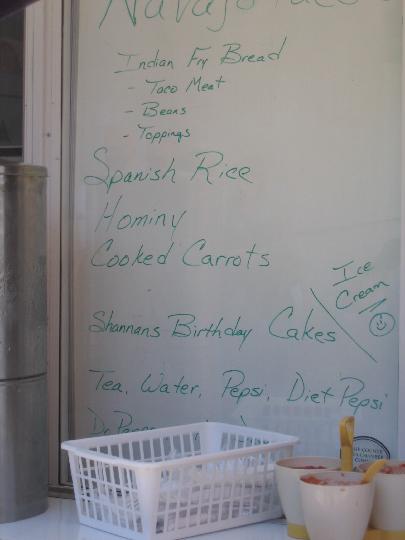 Navajo Tacos
Indian Fry Bread
- Taco Meat
- Beans
- Toppings
Spanish Rice
Hominy
Cooked Carrots
Ice
Cream
Shannans Birthday Cakes
Tea, Water, Pepsi, Diet Pepsi
Dr.